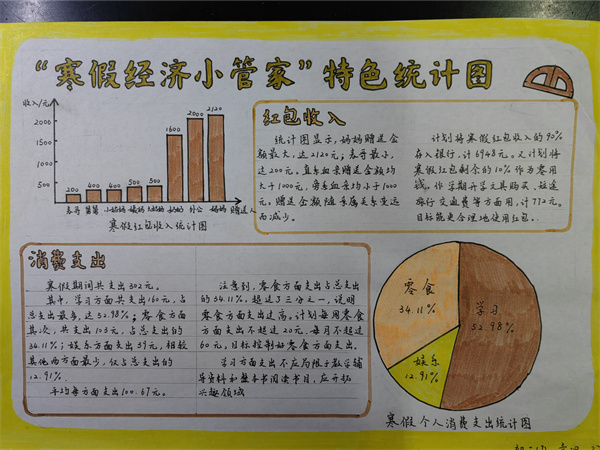 “寒假经济小管家”特色统计图
收入/元
2000
1500
1000
500
200
400
400
500
500
1600
2000
2120
外公
妈妈
赠送人
寒假红包收入统计图
红包收入
统计图显示,妈妈赠送金
额最大,达2120元;表哥最小,
达200元。直系血亲赠送金额均
大于1000元,旁系血亲均小于1000
元。赠送金额随亲属关系变远
而减少。
计划将寒假红包收入的90%
存入银行,计6948元。又计划将
寒假红包剩余的10%作为零用
钱,作学期开学文具购买、短途
旅行交通费等方面用,计772元。
目标能更合理地使用红包。
消费支出
寒假期间共支出302元。
其中,学习方面共支出160元,占
总支出最多,达52.98%;零食方面
其次,共支出103元,占总支出的
34.11%;娱乐方面支出39元,相较
其他两方面最少,仅占总支出的
12.91%.
平均每方面支出100.67元。
注意到,零食方面支出占总支出
的34.11%,超过了三分之一,说明
零食方面支出过高。计划每周零食
方面支出不超过20元,每月不超过
60元。目标控制好零食方面支出。
学习方面支出不应局限于教学辅
导资料和整本书阅读书目,应开拓
兴趣领域
零食
34.11%
学习
52.98%
娱乐
12.91%
寒假个人消费支出统计图